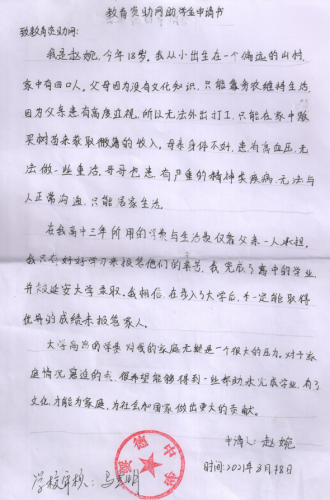 教育资助网助学金申请书
致教育资助网:
我是赵婉,今年18岁。我从小出生在一个偏远的山村,
家中有四口人。父母因为没有文化知识,只能靠务农维持生活,
因为父亲患有高度近视,所以无法外出打工,只能在家中贩
买树苗来获取微薄的收入。母亲身体不好,患有高血压,无
法做一些重活。哥哥也患有严重的精神类疾病,无法与
人正常沟通,只能居家生活。
在我高中三年所用的学费与生活费仅靠父亲一人承担,
我只有好好学习来报答他们的辛劳。我完成了高中的学业
并被延安大学录取。我相信,在步入了大学后,我一定能取得
优异的成绩来报答家人。
大学高昂的学费对我的家庭无疑是一个很大的压力。对于家
庭情况窘迫的我,很希望能够得到一些帮助来完成学业,有了
文化才能为家庭,为社会和国家做出更大的贡献。
申请人:赵婉
时间:2021年3月18日
学校审核:马